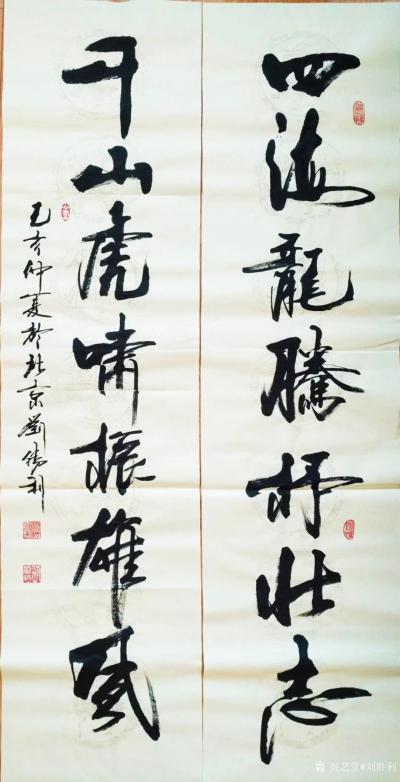 四海龍騰抒壯志
千山虎嘯振雄風
己亥仲夏於北京劉勝利
兴艺堂@刘胜利